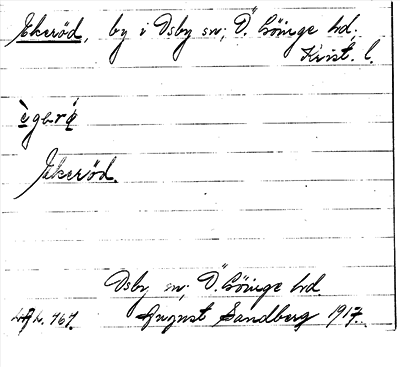 Ekeröd, by i Osby sn; Ö. Göinge hd;
Krist. l.
ègərø̀
Ekeröd.
Osby sn; Ö. Göinge hd.
August Sandberg 1917.